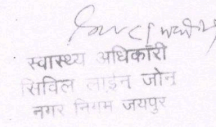 स्वास्थ्य अधिकारी
सिविल लाईन जोन
नगर निगम जयपुर